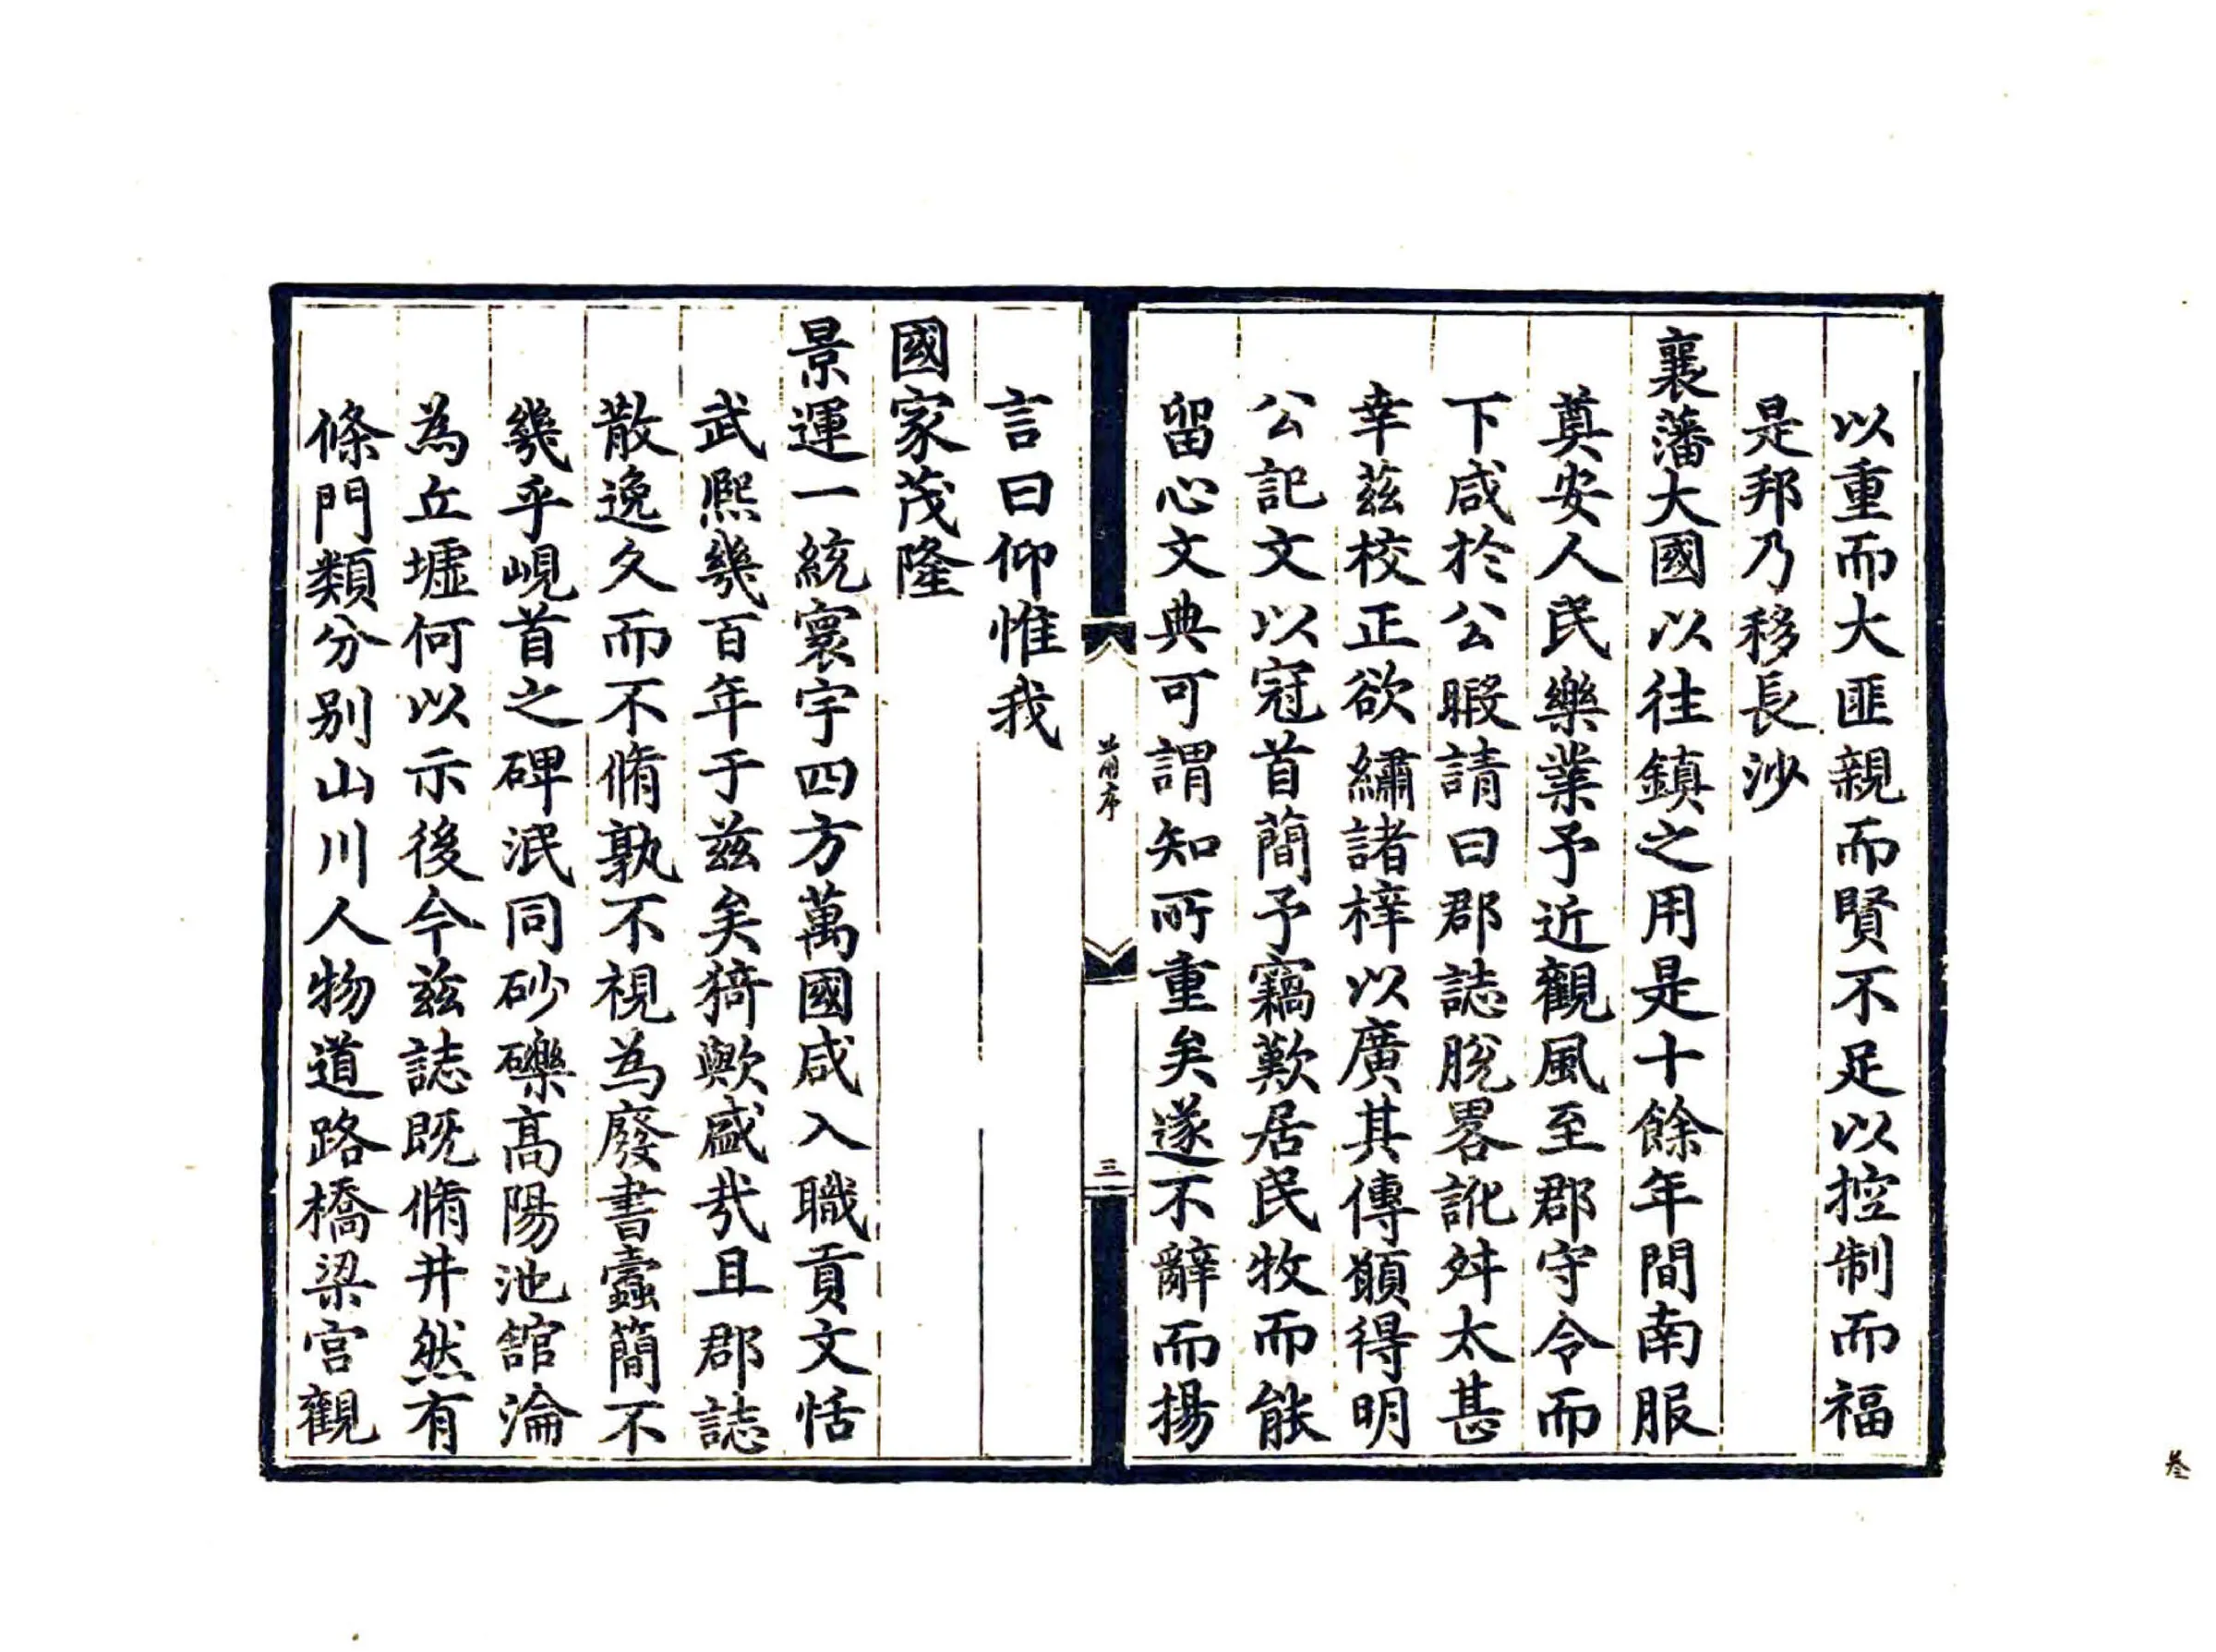 以重而大匪親而賢不足以控制而福
是邦乃移長沙
襄藩大國以往鎮之用是十餘年間南服
奠安人民樂業予近觀風至郡守令而
下咸於公暇請曰郡誌脫畧訛舛太甚
幸茲校正欲繡諸梓以廣其傳願得明
公記文以冠首簡予竊歎居民牧而能
留心文典可謂知所重矣遂不辭而揚
前序
三
言曰仰惟我
國家茂隆
景運一統寰宇四方萬國咸入職貢文恬
武熙幾百年于茲矣猗歟盛哉且郡誌
散逸久而不脩孰不視為廢書蠧簡不
幾乎峴首之碑泯同砂礫高陽池舘淪
為丘墟何以示後今茲誌既脩井然有
條門類分別山川人物道路橋梁宮觀
叄